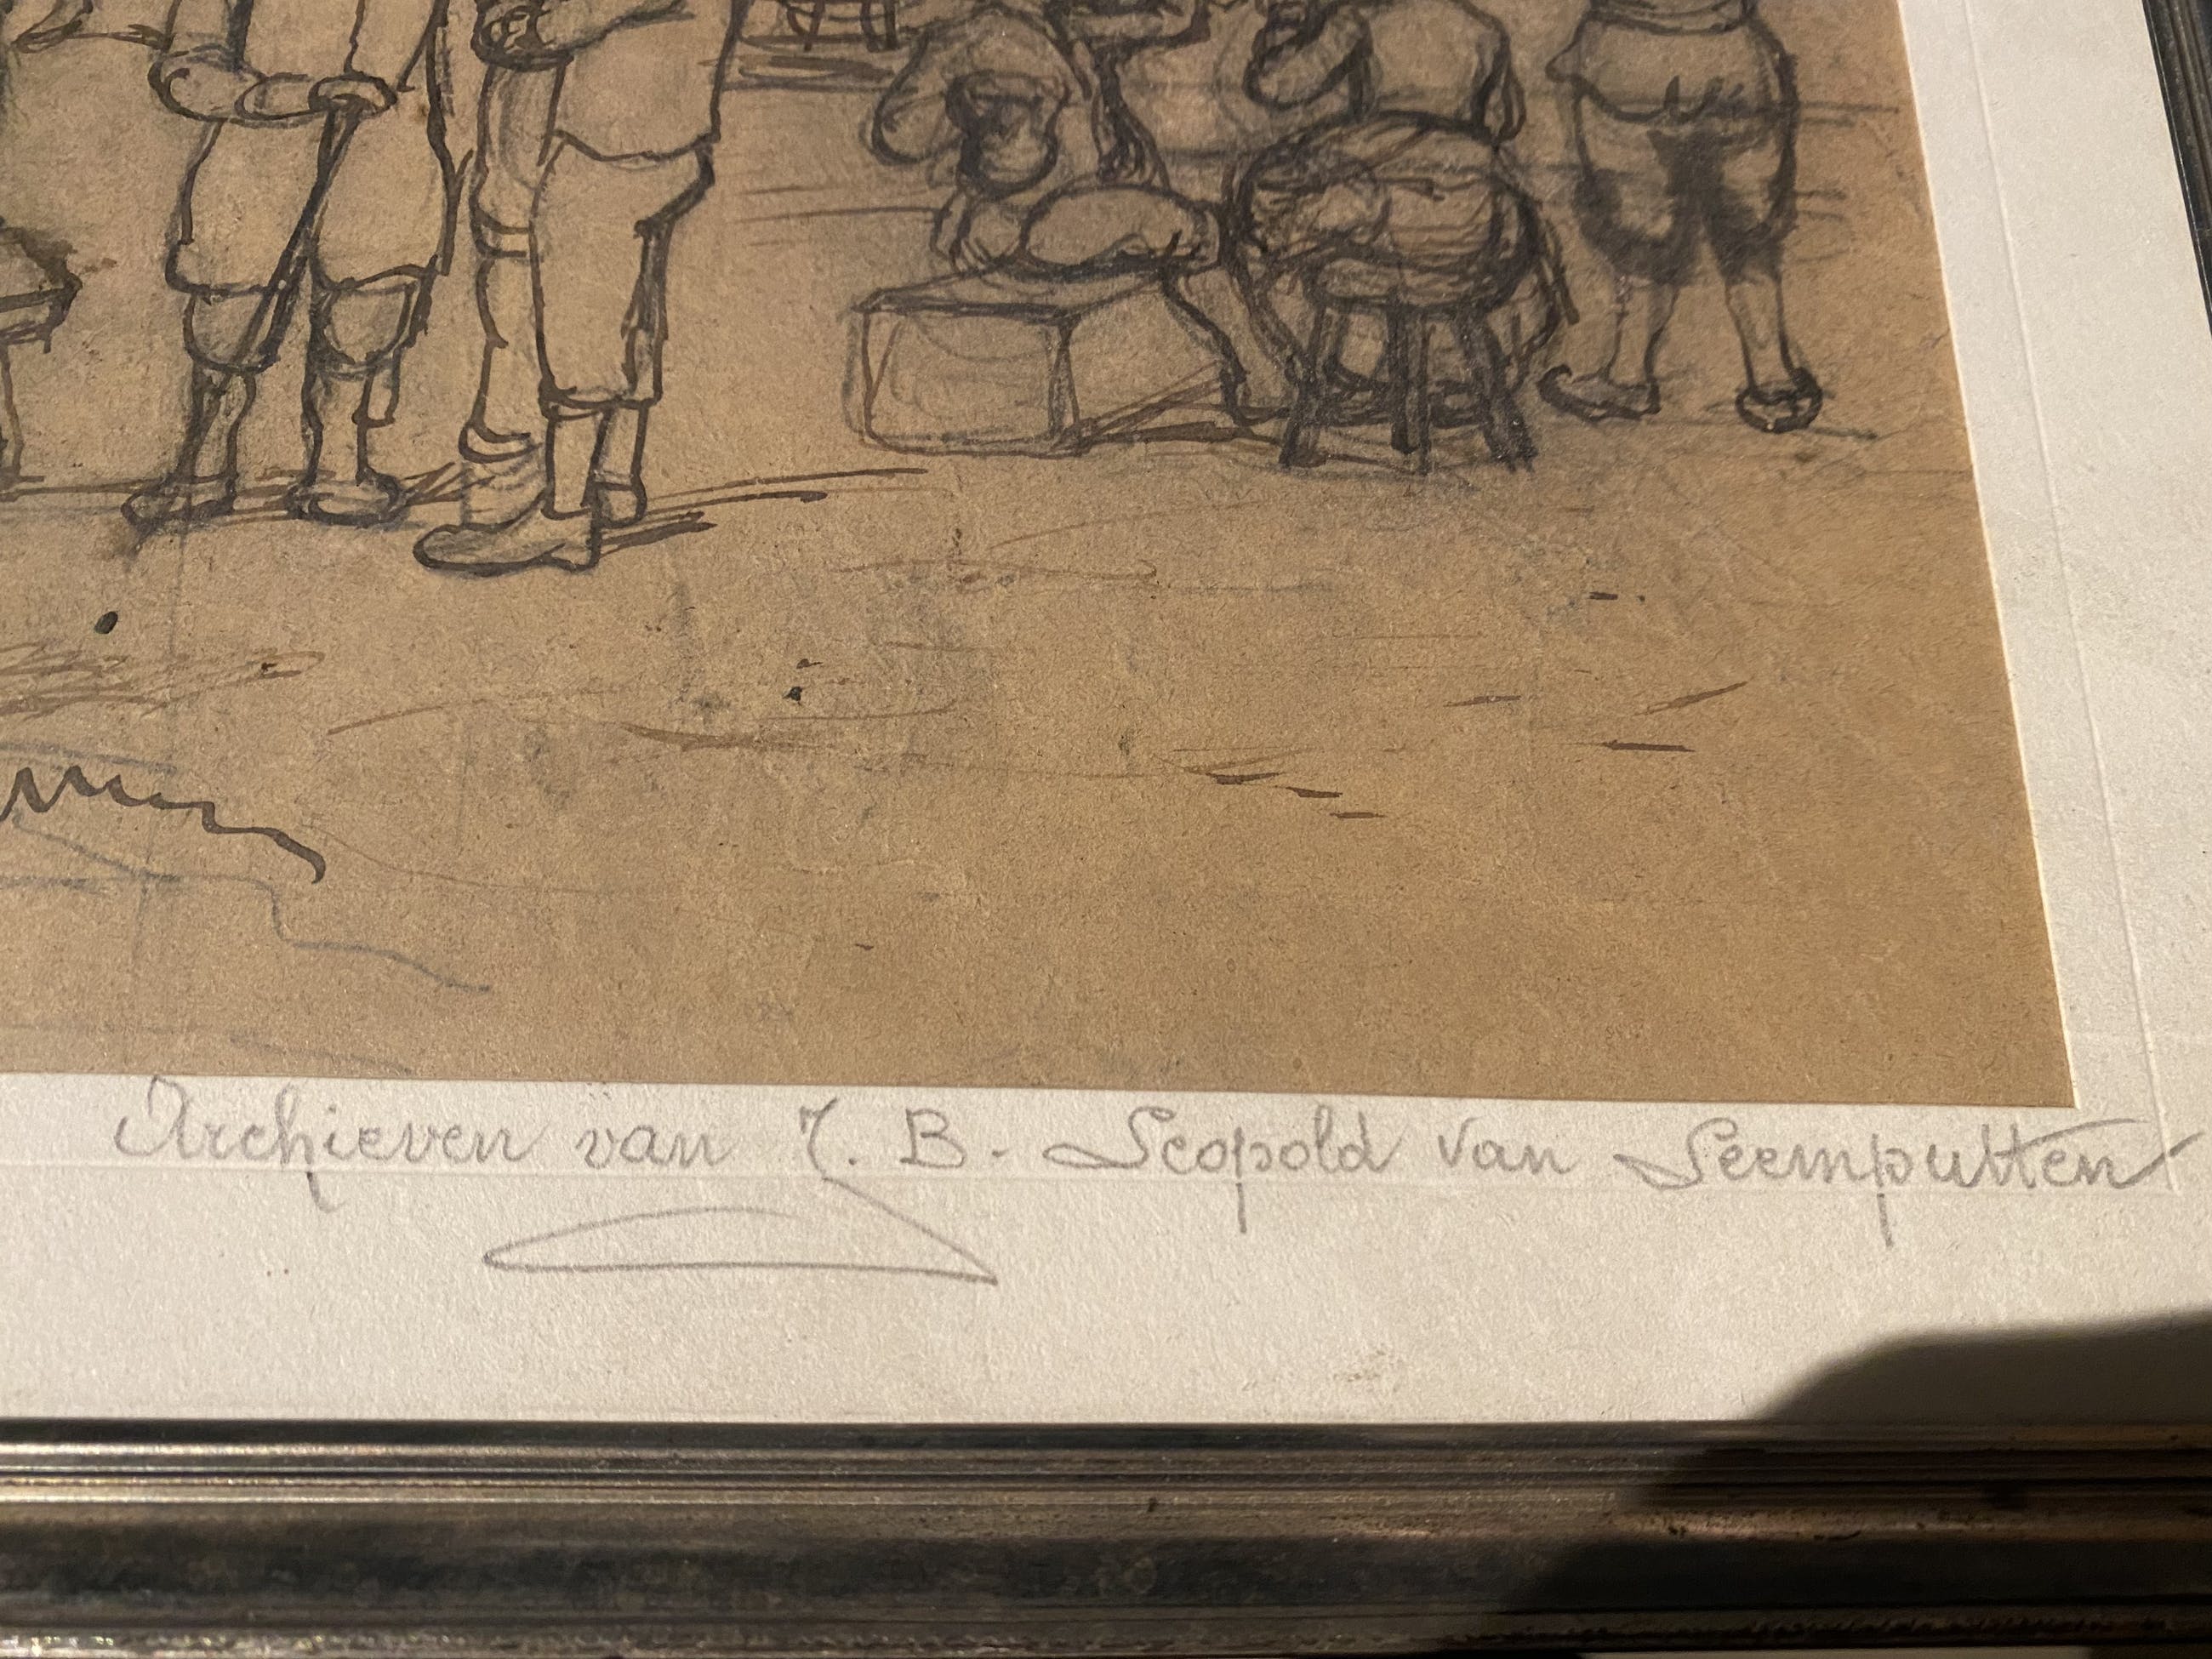 Archieven van J. B. Leopold van Leemputten